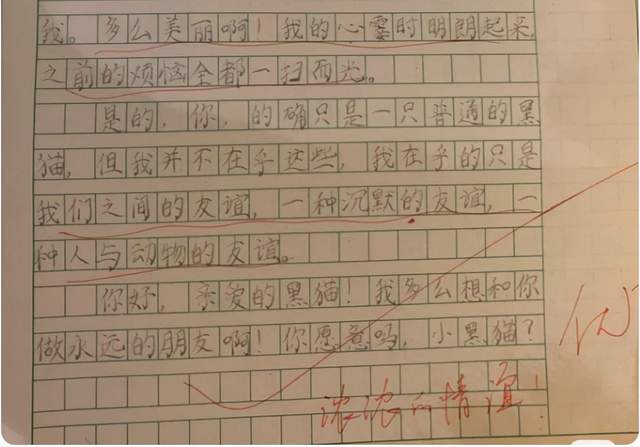 我。多么美丽啊！我的心霎时明朗起来，
之前的烦恼全都一扫而光。
是的，你，的确只是一只普通的黑
猫，但我并不在乎这些，我在乎的只是
我们之间的友谊，一种沉默的友谊，一
种人与动物的友谊。
你好，亲爱的黑猫！我多么想和你
做永远的朋友啊！你愿意吗，小黑猫？
优
浓浓的情谊！